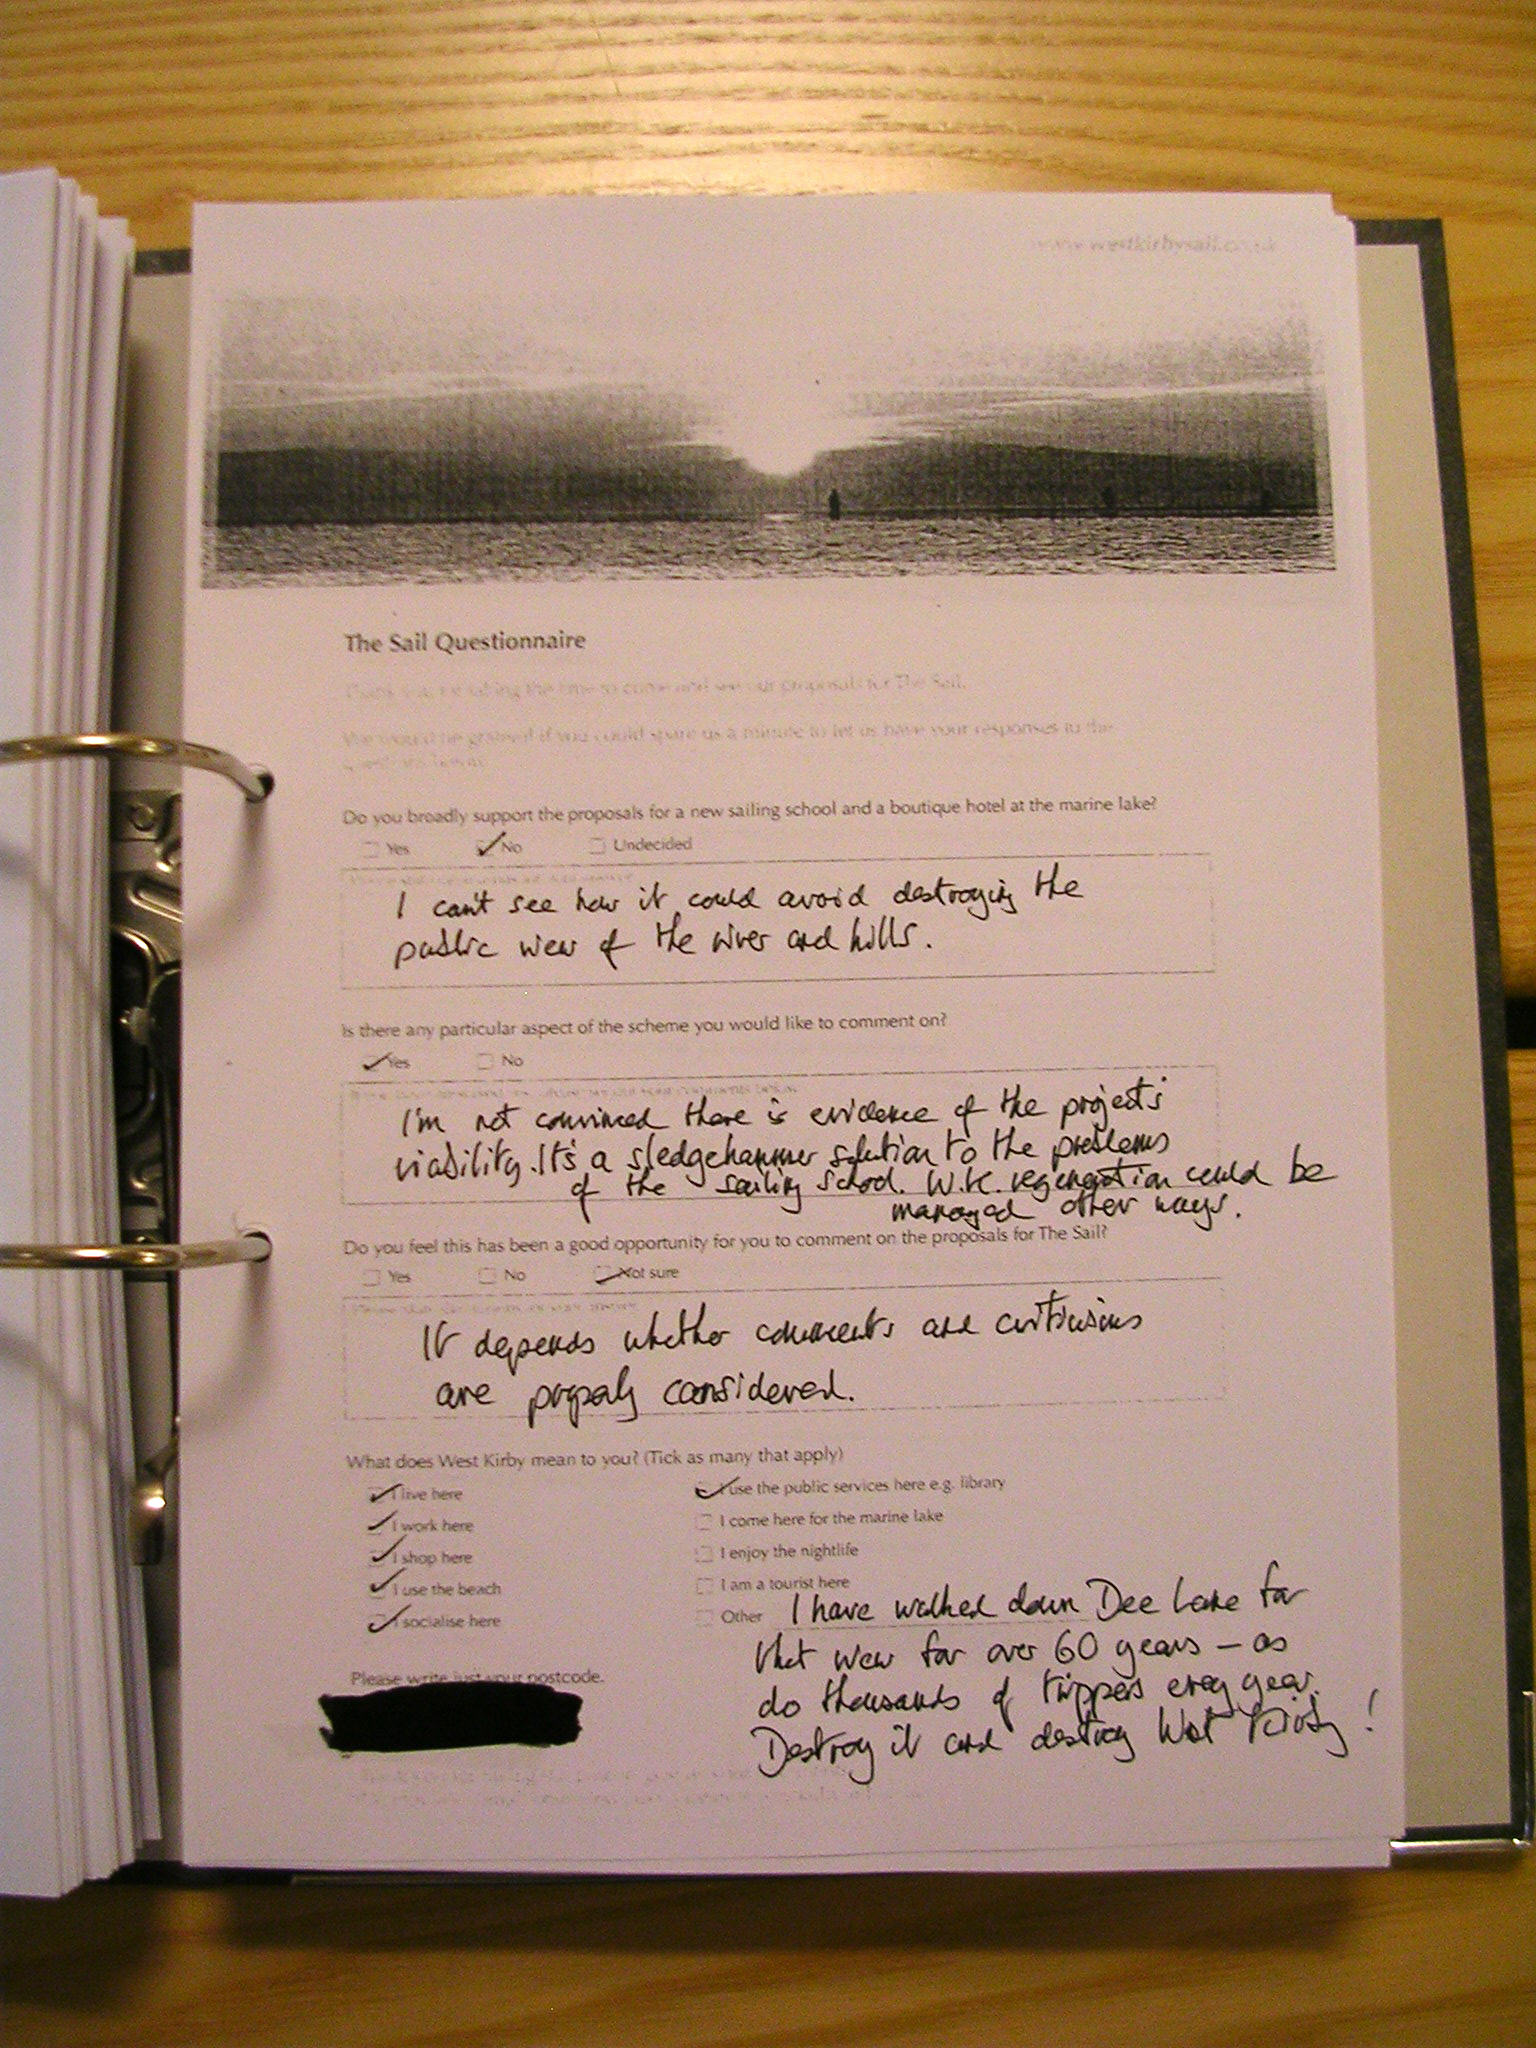 www.westkirbysail.co.uk
The Sail Questionnaire
Thank you for taking the time to come and see our proposals for The Sail.
We would be grateful if you could spare us a minute to let us have your responses to the
questions below.
Do you broadly support the proposals for a new sailing school and a boutique hotel at the marine lake?
Yes No Undecided
I can't see how it could avoid destroying the
public view of the river and hills.
Is there any particular aspect of the scheme you would like to comment on?
Yes No
I'm not convinced there is evidence of the project's
viability. It's a sledgehammer solution to the problems
of the sailing school. W.K. regeneration could be
managed other ways.
Do you feel this has been a good opportunity for you to comment on the proposals for The Sail?
Yes No Not sure
It depends whether comments and criticisms
are properly considered.
What does West Kirby mean to you? (Tick as many that apply)
I live here
I work here
I shop here
I use the beach
I socialise here
I use the public services here e.g. library
I come here for the marine lake
I enjoy the nightlife
I am a tourist here
Other I have walked down Dee Lane for
that view for over 60 years - as
do thousands of trippers every year.
Destroy it and destroy West Kirby!
Please write just your postcode.